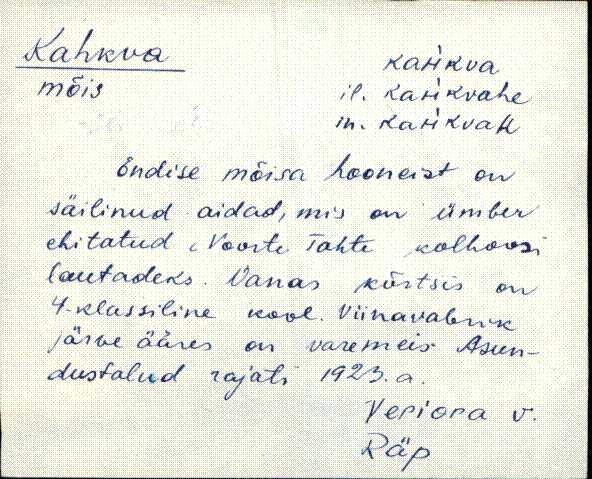 Kahkva
mõis
kaHkva
il. kaHkvahe
in. kaHkvaH
Endise mõisa hooneist on
säilinud aidad, mis on ümber
ehitatud "Noorte Tahte kolhoosi
lautadeks. Vanas kõrtsis on
4-klassiline kool. Viinavabrik
järve ääres on varemeis. Asun-
dustalud rajati 1923. a.
Veriora v.
Räp